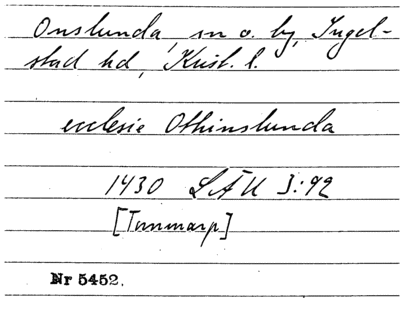 Onslunda, sn o. by, Ingel-
stad hd, Krist. l.
ecclesie Othinslunda
1430 LÄU 3:92
[Tommarp]
Nr 5452.